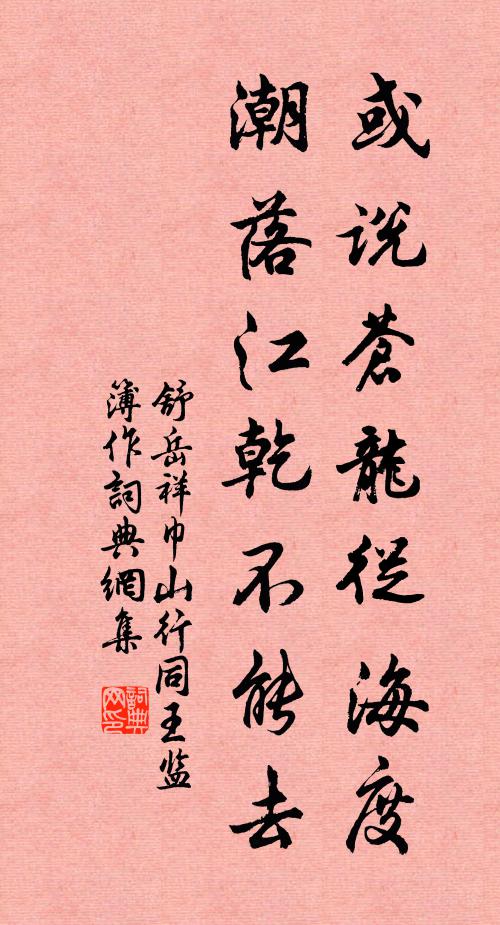 或说蒼龍從海度
潮落江乾不能去
舒岳祥巾山行同王监
簿作詞典網集
詞典
网印